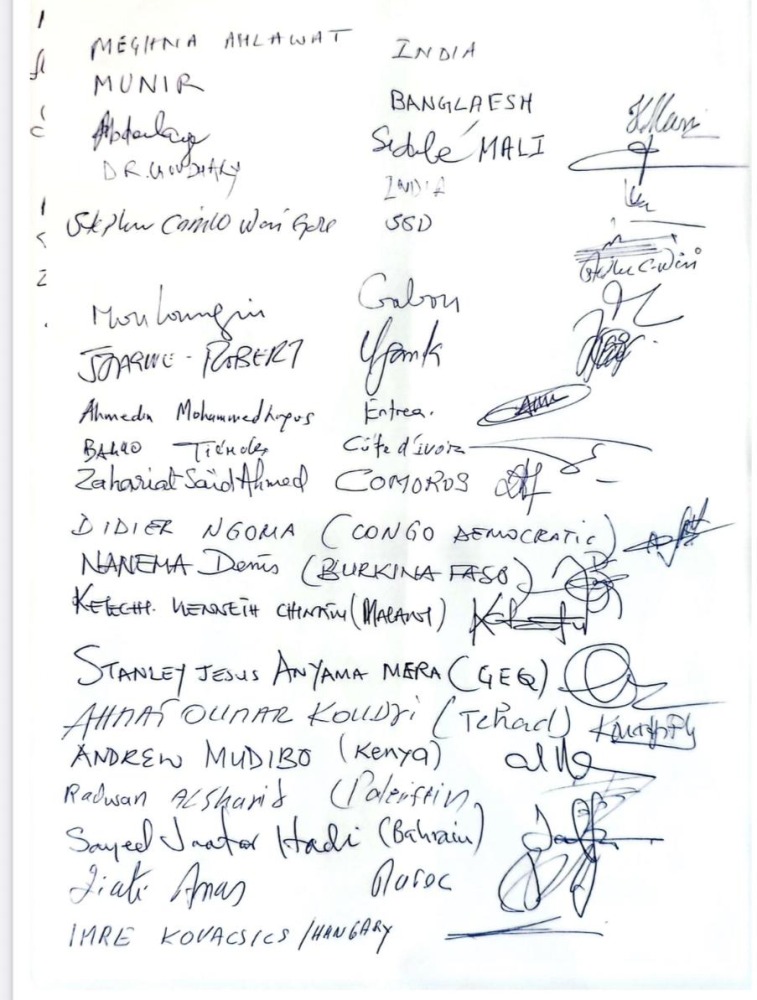 MEGHNA AHLAWAT INDIA
MUNIR BANGLAESH
Abdoulaye Sidibé MALI
DR. CHOUDHARY INDIA
Stephen Camilo Wani Gore SSD
Mouloungui Gabon
ROBERT
Ahmedin Mohammed Eritrea.
Côte d'ivoire
Zahariat Saïd Ahmed COMOROS
DIDIER NGOMA (CONGO DEMOCRATIC)
NANEMA Denis (BURKINA FASO)
KELECHI. KENNETH (MALAWI)
STANLEY JESUS ANYAMA MERA (GEQ)
AHMAT OUMAR KOUDJI (Tchad)
ANDREW MUDIBO (Kenya)
Radwan ALSharif (Palestin,
Sayeed Jaafar Hadi (Bahrain)
Ziati Anas Maroc
IMRE KOVACSICS /HANGARY